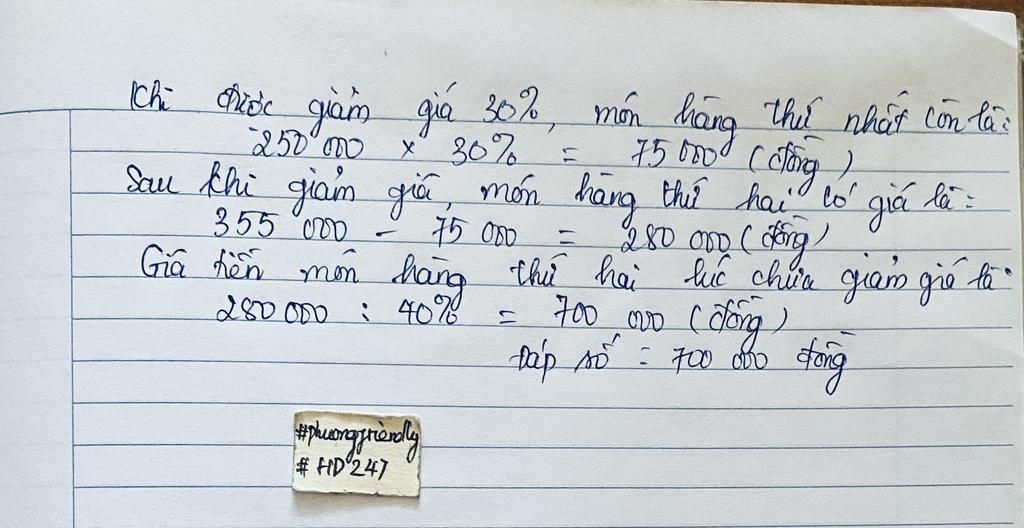 Khi được giảm giá 30%, món hàng thứ nhất còn là:
250 000 × 30% = 75 000 (đồng)
Sau khi giảm giá, món hàng thứ hai có giá là:
355 000 - 75 000 = 280 000 (đồng)
Giá tiền món hàng thứ hai lúc chưa giảm giá là:
280 000 : 40% = 700 000 (đồng)
Đáp số: 700 000 đồng
#phuongfriendly
# HD247